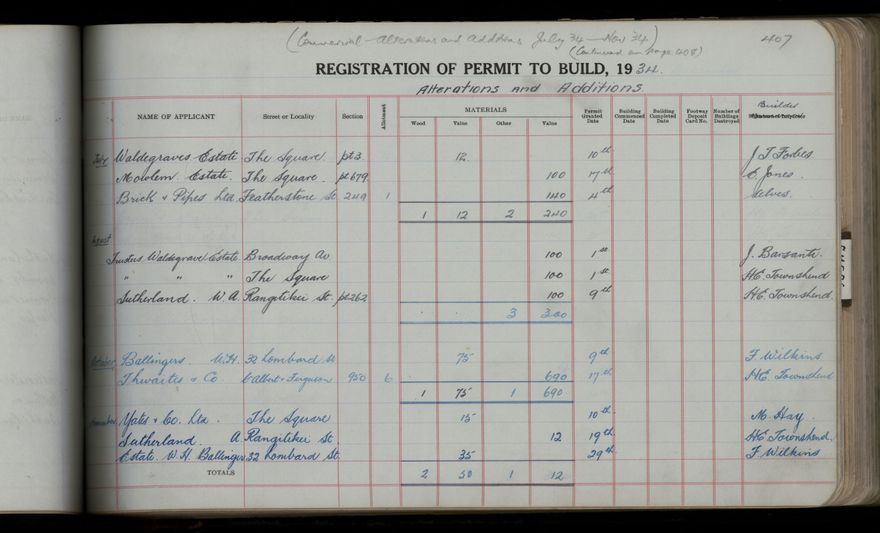 (Commercial - Alterations and Additions July 34 - Nov '34)
(Continued on page 408)
407
REGISTRATION OF PERMIT TO BUILD, 1934.
Alterations and Additions
NAME OF APPLICANT Street or Locality Section Allotment MATERIALS Wood Value Other Value Permit Granted Date Building Commenced Date Building Completed Date Footway Deposit Card No. Number of Buildings Destroyed Builder
July Waldegraves Estate The Square pt 3 12 10th J T Forbes
Mowlem Estate. The Square. pt 679 100 17th E. Jones.
Brick & Pipes Ltd. Featherstone St. 249 1 140 4th Alves.
1 12 2 240
August
Trustees Waldegrave Estate Broadway Av. 100 1st J. Barsanti.
" " " The Square 100 1st H.E. Townshend
Sutherland. W A. Rangitikei St. pt 262 100 9th H.E. Townshend.
. . 3 300
October Ballingers W.H. 32 Lombard St 75 9th F Wilkins
Thwaites & Co c/ Albert & Ferguson 950 6 690 17th H.E. Townshend
1 75 1 690
November Yates & Co. Ltd. The Square 15 10th M. Hay.
Sutherland. A. Rangitikei St. 12 19th H.E. Townshend.
Estate. W.H. Ballinger 32 Lombard St. 35 29th F Wilkins
TOTALS 2 50 1 12